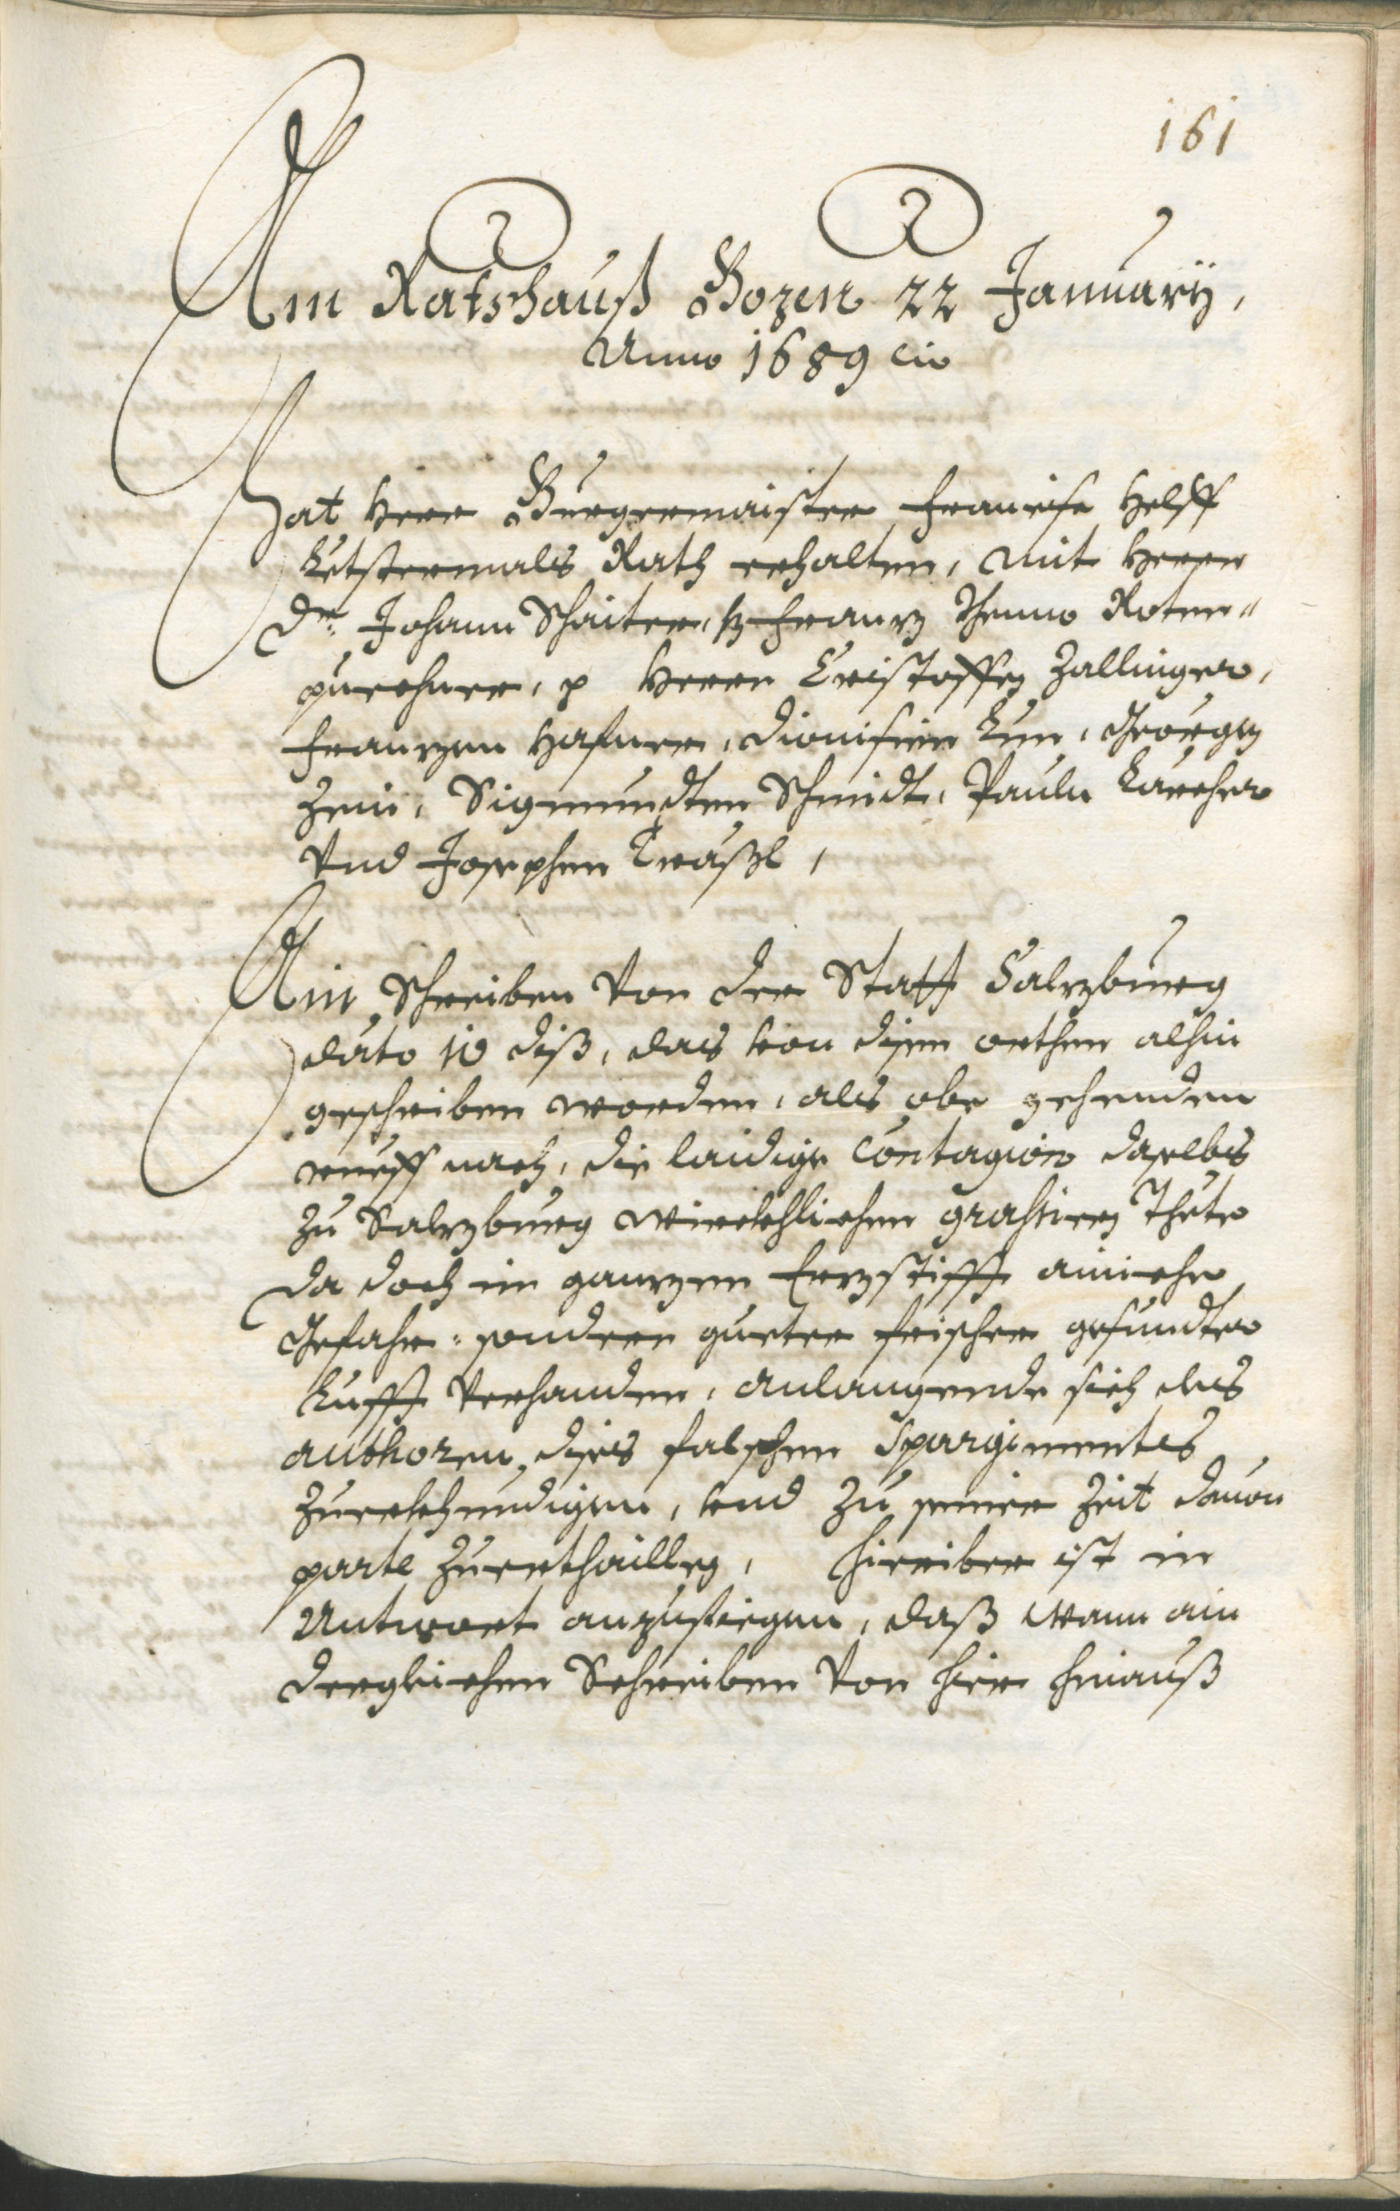 161
Am Ratshauß Bozen 22 January,
Anno 1689
Hat Herr Burgermaister Francisc Helff
Letstermals Rath erhalten, mit Herrn
Dr: Johann Schaiter, Franz Thimo Roten"
purcher, p Herrn Cristoffen Zallinger,
Franzen Hafner, Dionisien Kun, Georgen
Zeni, Sigmundten Schmidt, Pauln Karcher
Vnd JosephenTräßl,
Ain Schreiben Von der Statt Salzburg
dato 10 diß, das von disen orthen alhin
geschriben worden, als ob gehenden
rueff nach, die laidige Contagion daselbs
zu Salzburg wircklichen grahsiern thete
da doch im ganzen Erzstifft ainiche
Gefahr: sondern gueter frischer gesundter
Lufft Verhanden, anlangende sich des
authoren dises falschen Spargimentes
zuerkhundigen, vnd zu seiner Zeit dauon
parte zuerthaillen, hierüber ist in
Antwort anzufiegen, daß wann ain
dergleichen Schreiben Von hier hinauß